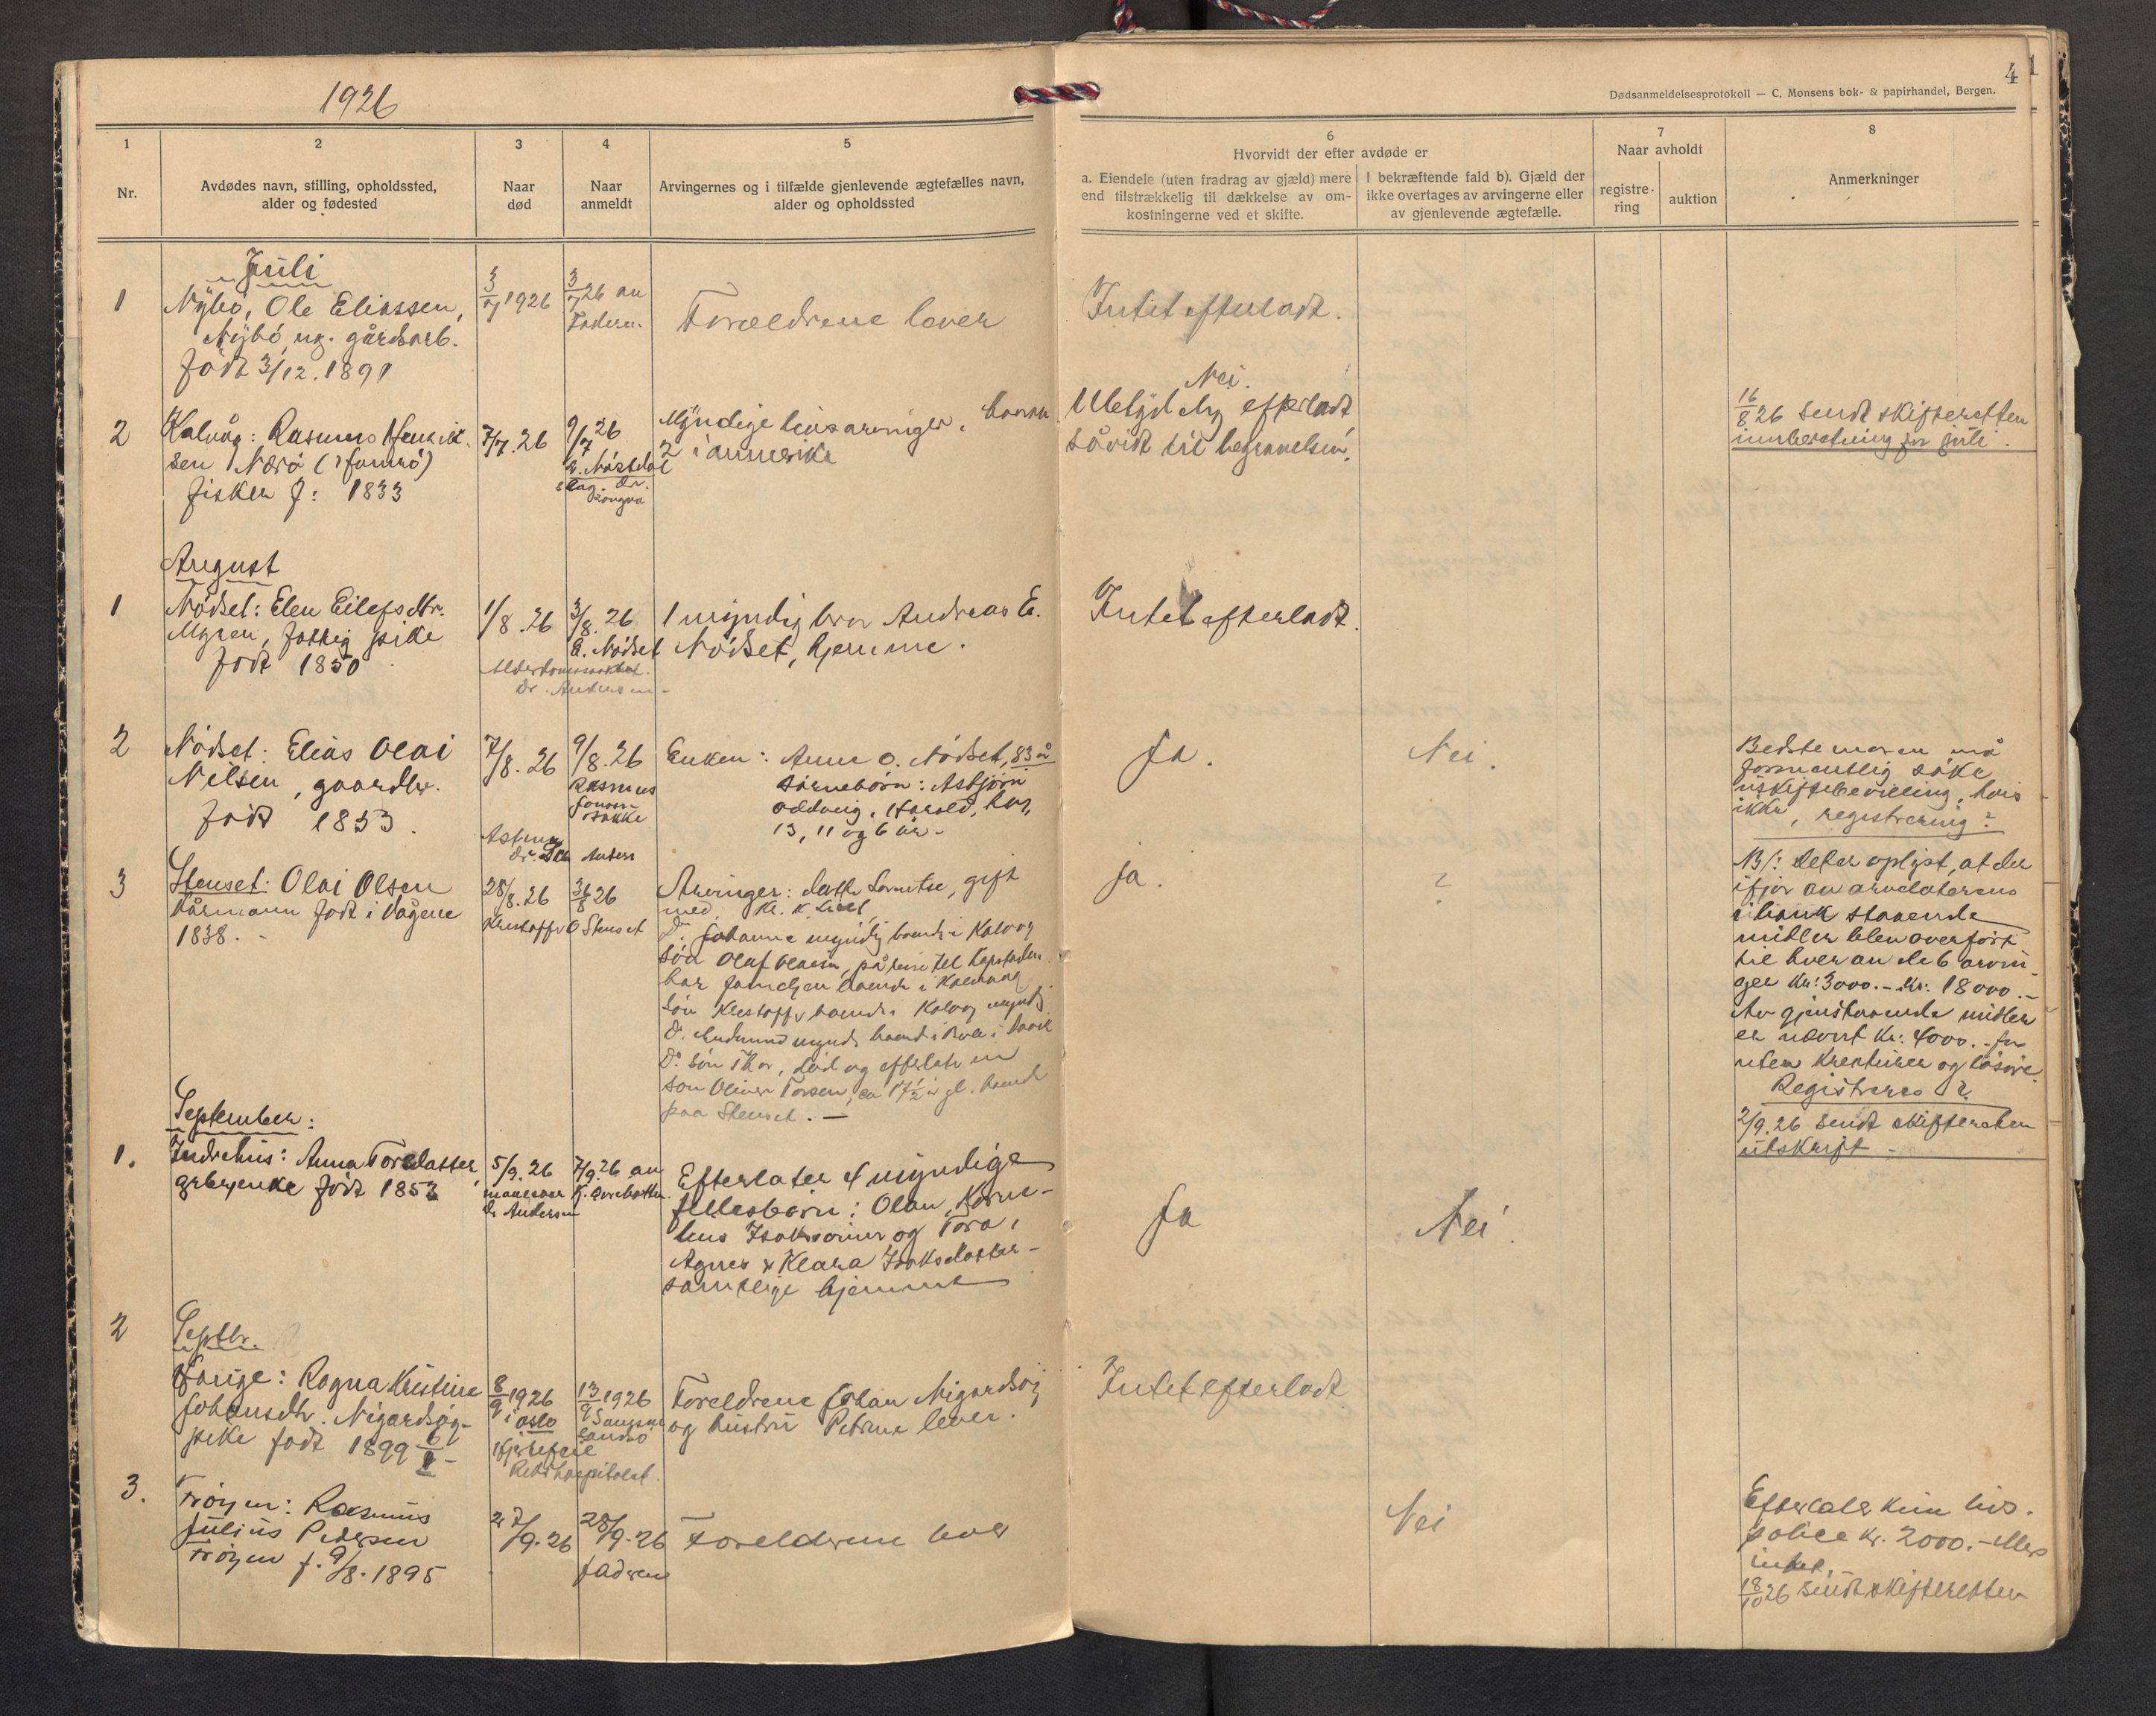 1926
4
Dødsanmeldelsesprotokoll — C. Monsens bok- & papirhandel, Bergen.
1
2
3
4
5
6
7
8
Nr.
Avdødes navn, stilling, opholdssted,
alder og fødested
Naar
død
Naar
anmeldt
Arvingernes og i tilfælde gjenlevende ægtefælles navn,
alder og opholdssted
Hvorvidt der efter avdøde er
a. Eiendele (uten fradrag av gjæld) mere
end tilstrækkelig til dækkelse av om-
kostningerne ved et skifte.
I bekræftende fald b). Gjæld der
ikke overtages av arvingerne eller
av gjenlevende ægtefælle.
Naar avholdt
registre-
ring
auktion
Anmerkninger
Juli
1
Nybö, Ole Eliassen,
Nybö, ug. gårdsarb.
födt 3/12. 1891
3/7 1926
3/7 26 av
Faderen.
Forældrene lever
Intet efterladt.
2
Kalvåg: Rasmus Henrik-
sen Nærö
fisker f: 1833
7/7. 26
9/7 26
Myndige livsarvinger.
2 i amerika
Nei.
Ubetydelig efterladt
såvidt til begravelsen.
16/8 26 sendt skifteretten
innberetning for juli.
August
1
Nödset: Elen Eilefsdtr.
Myren, fattig pike
födt 1850
1/8. 26
3/8. 26
E. Nödset
Alderdomssvakhet.
dr. Andersen
1 myndig bror Andreas E.
Nödset, hjemme.
Intet efterladt.
2
Nödset: Elias Olai
Nelsen, gaardbr.
födt 1853.
7/8. 26
9/8. 26
Rasmus
Enken: Anne O. Nödset, 83 å
Barnebörn: Asbjörn
Oddveig, Harald, hv.
13, 11 og 6 år.
Ja.
Nei.
Bedstemoren må
formentlig söke
uskiftebevilling, hvis
ikke, registrering?
3
Stenset: Olai Olsen
Kårmann födt i Vågene
1838.
28/8. 26
Kristoffer O Stenset
Arvinger: datter, gift
med
Dr. Johanna myndig boende i Kalvåg
Sön Olaf Olaisen, på reise til
har familjen boende i Kalvaag
Sön Kristoffer boende i Kalvåg mynd.
Dr. sön Thor, död og efterlater en
son Oliver Torsen, ca 17½ år gl. boende
paa Stenset. —
ja.
?
NB: Det er oplyst, at der
ifjor av arvelaterens
i bank staaende
midler blev overfört
til hver av de 6 arvin-
ger kr: 3000.- kr: 18000.-
Av gjenstaaende midler
er nævnt kr: 4000.-
uten kreaturer og lösöre.
Registreres?
2/9. 26 sendt skifteretten
utskrift -
September:
1.
Indrehus: Anna Torsdatter,
grbr.enke födt 1853
5/9. 26
dr Andersen
7/9. 26 av
Efterlater myndige
fellesbörn: Olav, Korne-
lius Isaksönner og Tora,
Agnes & Klara Isaksdötter -
samtlige hjemme
Ja
Nei.
2
Septbr.
Hauge: Ragna Kristine
Johansdtr. Nigardsög-
pike födt 1899
8/9 1926
i Oslo
Rikshospitalet.
13/9 1926
Foreldrene Johan Nigardsög
og hustru Petrine lever.
Intet efterladt
3.
Fröyen: Rasmus
Julius Pedersen
Fröyen f. 9/8. 1895
27/9. 26
28/9. 26
faderen
Foreldrene lever
Nei
Efterlater kun livs-
police kr. 2000.- ellers
intet.
18/10 26 sendt skifteretten